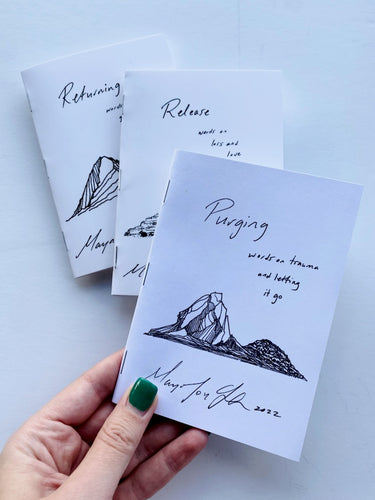 Returning
words
Release
words on
loss and
love
Purging
words on trauma
and letting
it go
2022